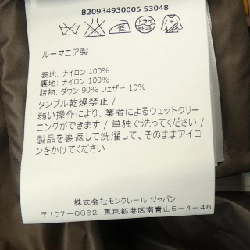 B20934930005 53048
ルーマニア製
表地: ナイロン 100%
裏地: ナイロン 100%
詰物: ダウン 90% フェザー 10%
タンブル乾燥禁止 /
弱い操作により、業者によるウェットクリー
ニングができます / 単独で洗ってください /
製品を裏返して洗濯して、そのままアイロ
ンをかけてください
株式会社モンクレール ジャパン
〒107-0032 東京都港区南青山5-1-46